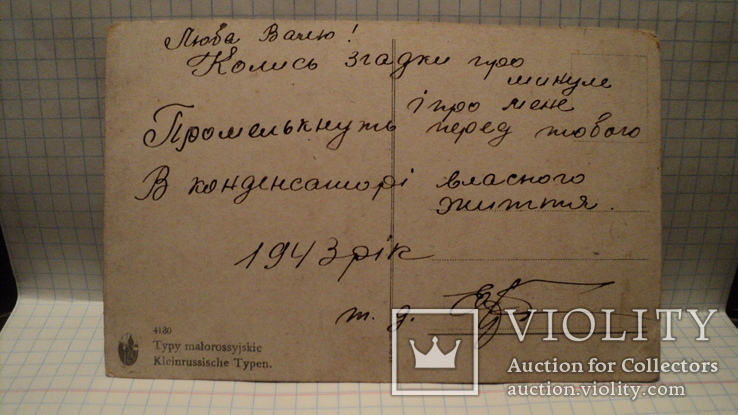 Люба Валю!
Колись згадки про
минуле
і про мене
Промелькнуть перед тобою
В конденсаторі власного
життя.
1943 рік
т. д.
4180
Typy małorossyjskie
Kleinrussische Typen.
VIOLITY
Auction for Collectors
auction.violity.com